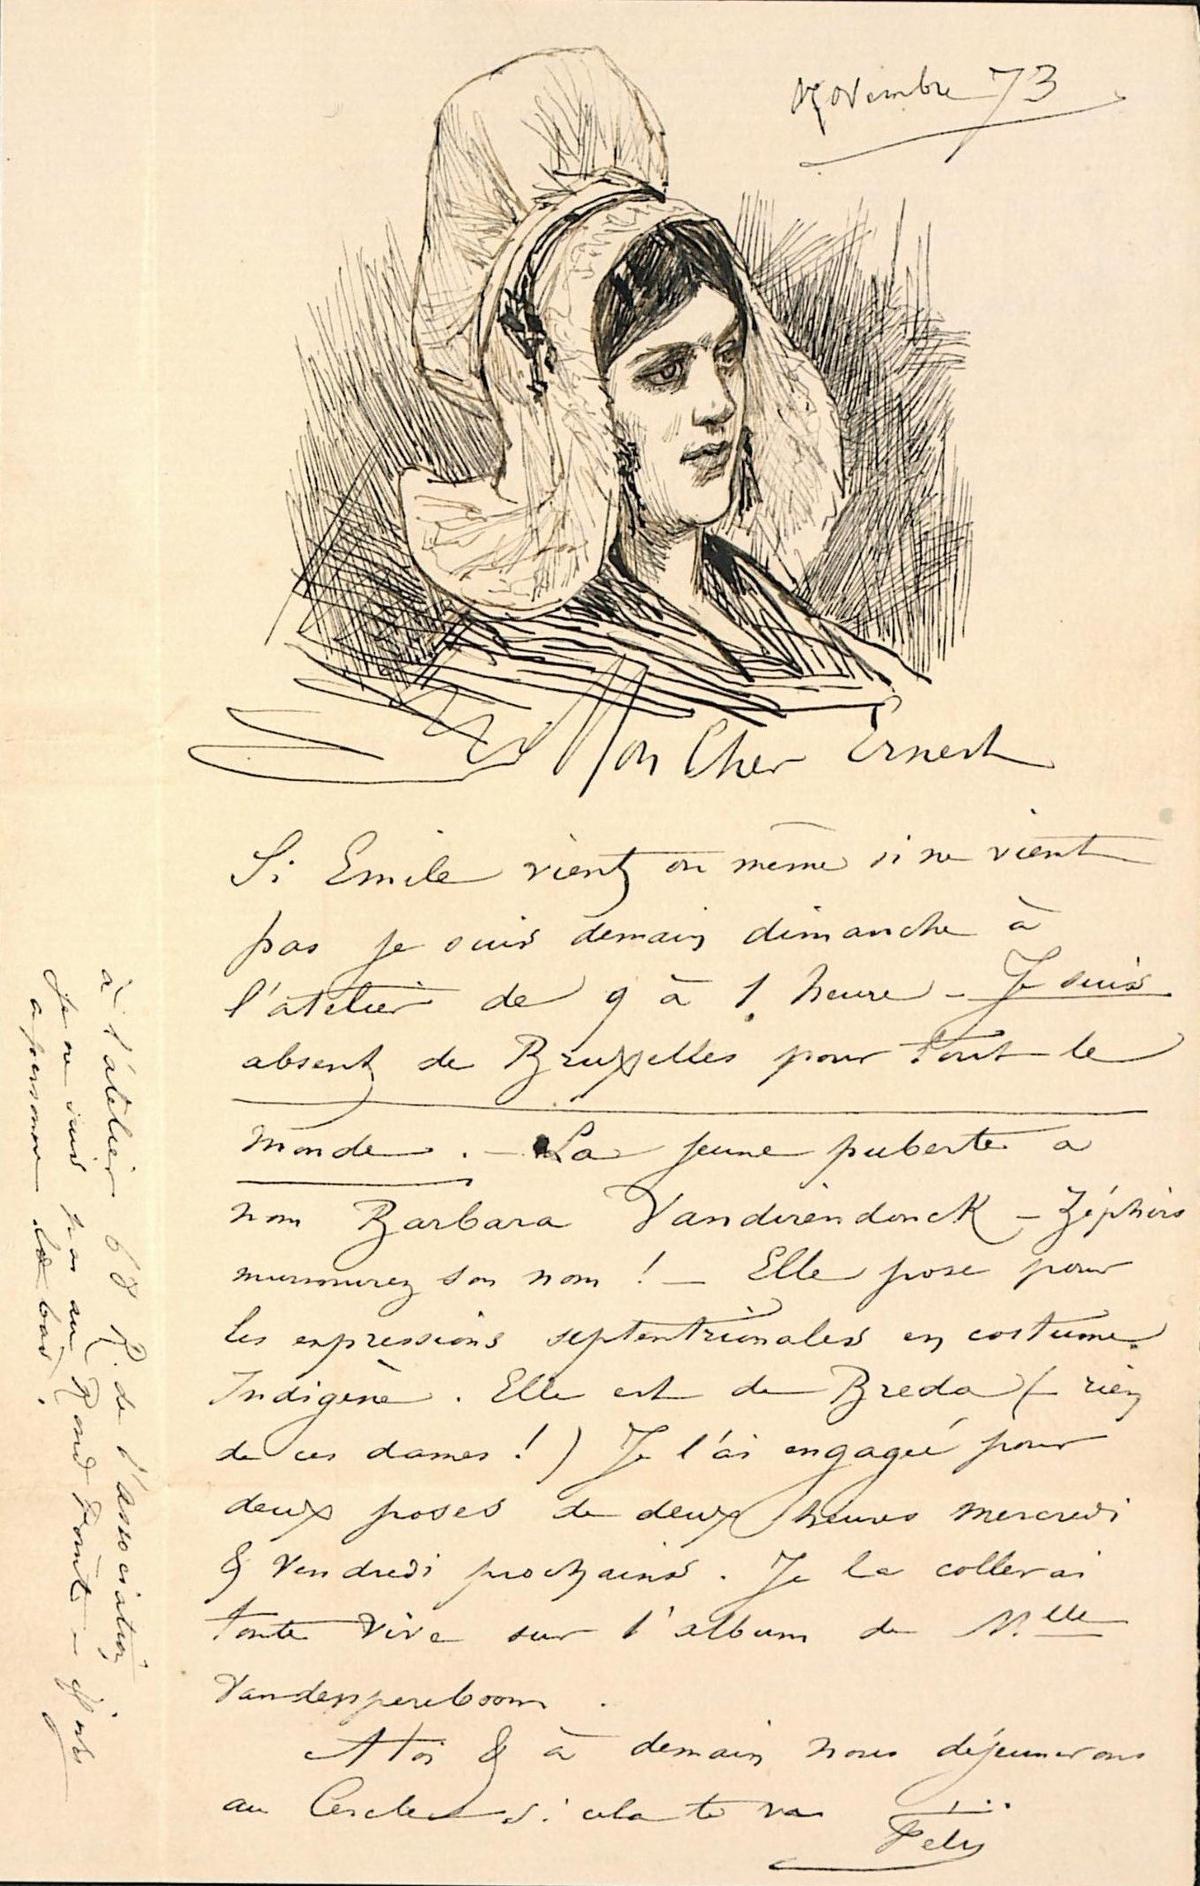 Novembre 73
Mon Cher Ernest
Si Emile vient ou même si ne vient
pas je suis demain dimanche à
l'atelier de 9 à 1 heure – Je suis
absent de Bruxelles pour tout le
monde. – La jeune puberte a
nom Barbara Vandirendonck – Zéphirs
murmurez son nom ! – Elle pose pour
les expressions septentrionales en costume
Indigène. Elle est de Breda (– rien
de ces dames ! ) Je l'ai engagée pour
deux poses de deux heures mercredi
& Vendredi prochains. Je la collerai
toute vive sur l'album de Mlle
Vandenpereboom.
A toi & à demain nous déjeunerons
au Cercle si cela te va
Fély
à l'atelier 68 R. de l'association
Je ne suis pas au Rond Point –
à personne là bas !